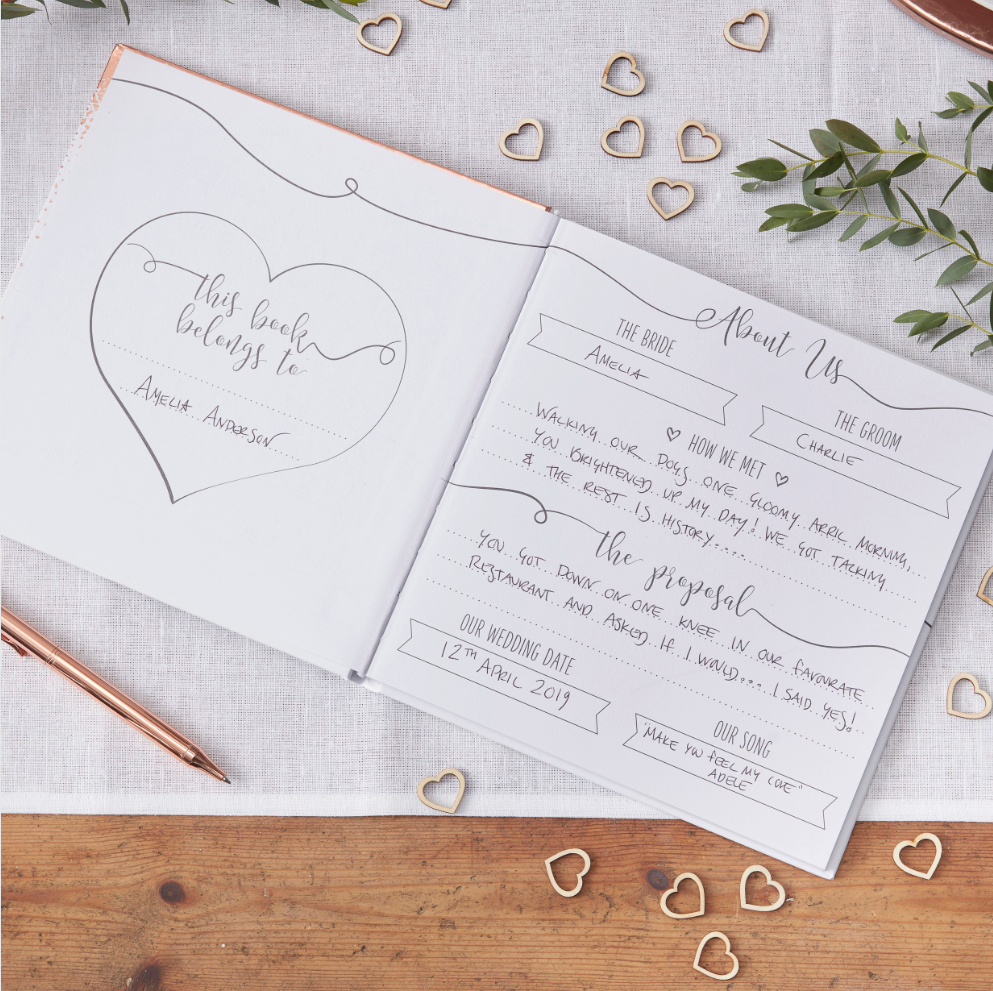 this book
belongs to
AMELIA ANDERSON
About Us
THE BRIDE
AMELIA
THE GROOM
CHARLIE
HOW WE MET
WALKING OUR DOGS ONE GLOOMY APRIL MORNING,
YOU BRIGHTENED UP MY DAY! WE GOT TALKING
& THE REST IS HISTORY....
the proposal
YOU GOT DOWN ON ONE KNEE IN OUR FAVOURATE
RESTAURANT AND ASKED IF I WOULD.... I SAID YES!
OUR WEDDING DATE
12TH APRIL 2019
OUR SONG
"MAKE YOU FEEL MY LOVE"
ADELE